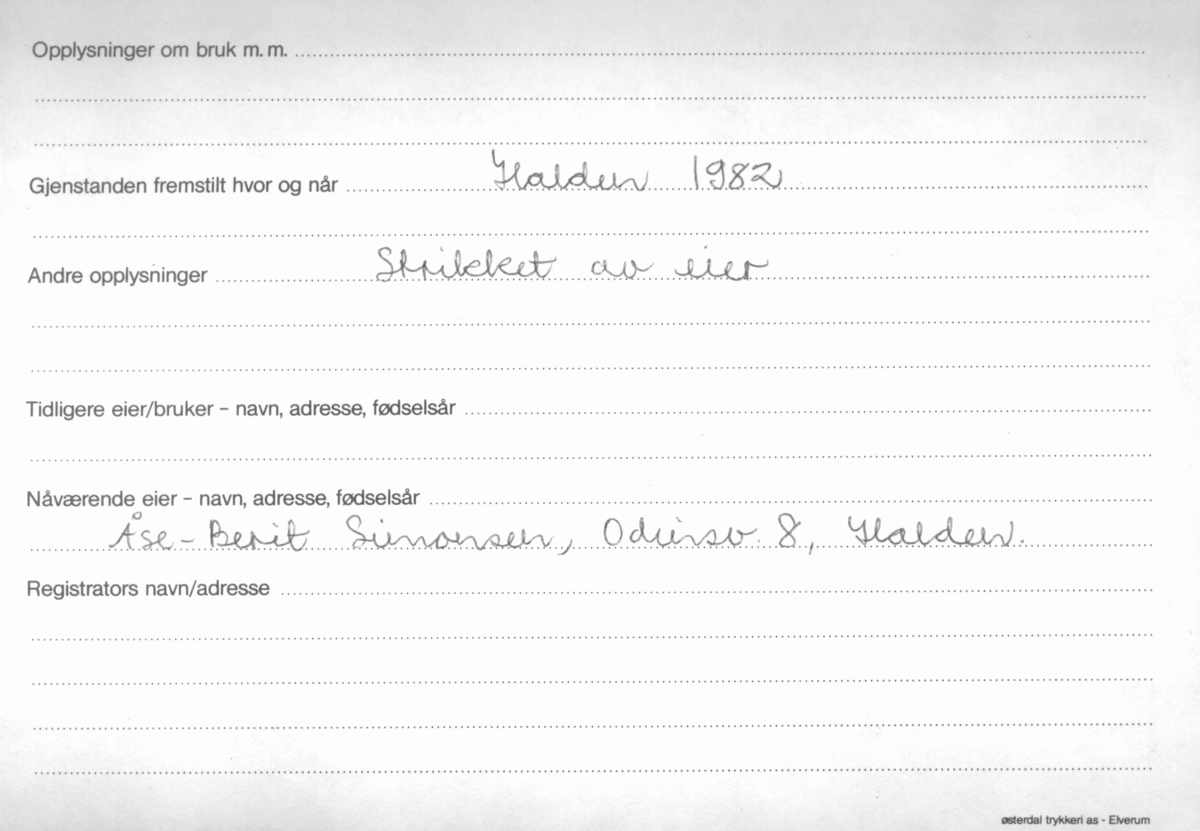 Opplysninger om bruk m.m.
Gjenstanden fremstilt hvor og når Halden 1982
Andre opplysninger Strikket av eier
Tidligere eier/bruker – navn, adresse, fødselsår
Nåværende eier – navn, adresse, fødselsår
Åse-Berit Simonsen, Odinsv. 8, Halden.
Registrators navn/adresse
østerdal trykkeri as - Elverum